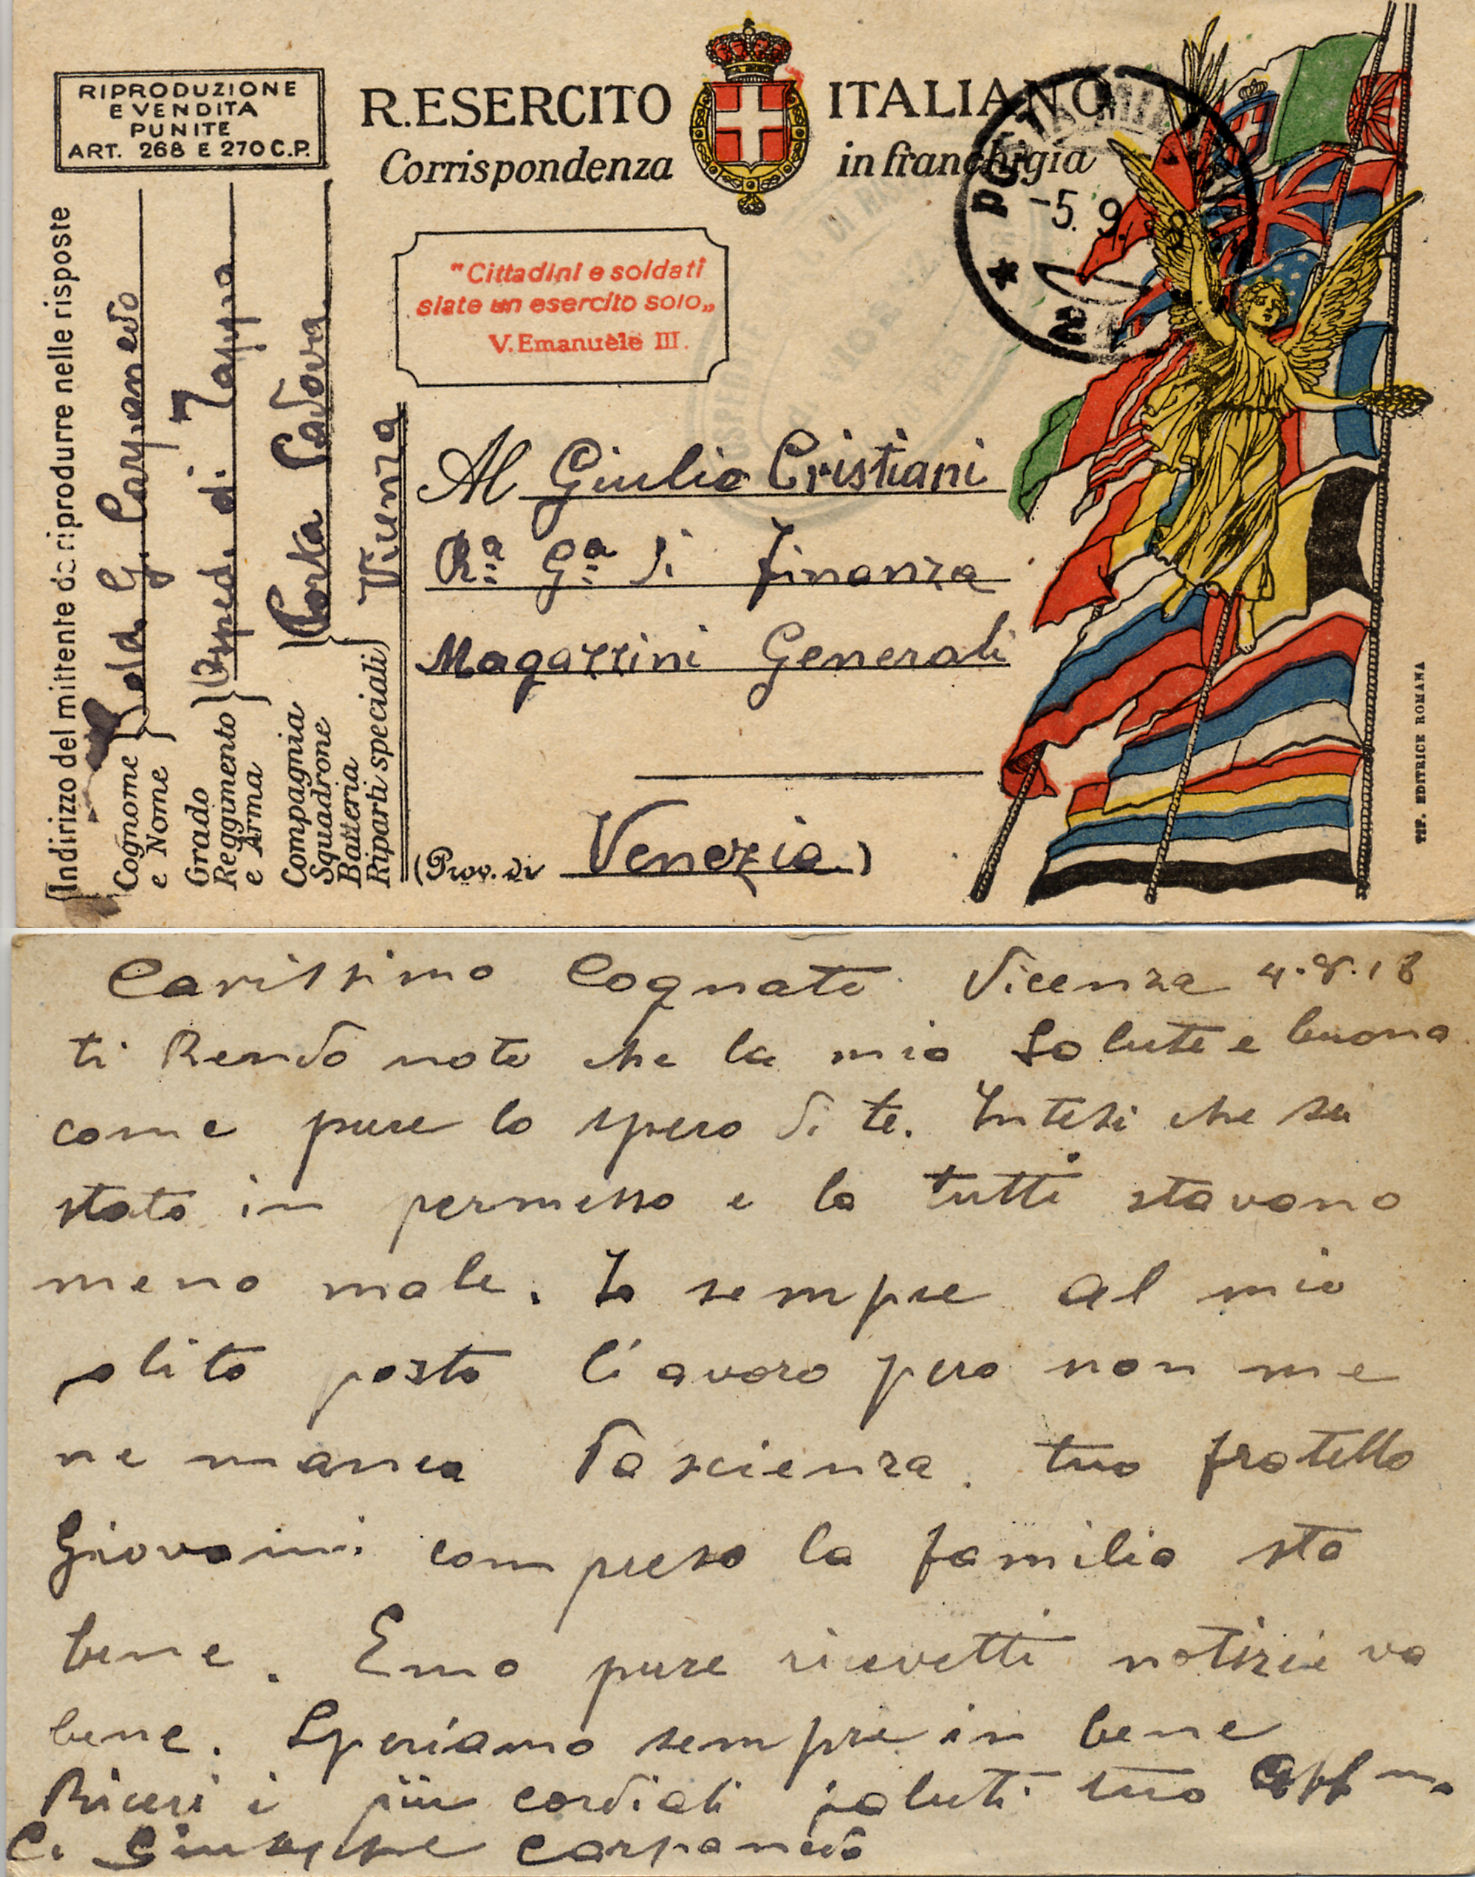 RIPRODUZIONE
E VENDITA
PUNITE
ART. 268 E 270 C.P.
R. ESERCITO ITALIANO
Corrispondenza in franchigia
"Cittadini e soldati
siate un esercito solo„
V. Emanuele III.
POSTA MILITARE
-5. 9. 18
Indirizzo del mittente da riprodurre nelle risposte
Cognome e Nome } Sold. G. Carpanedo
Grado Reggimento e Arma } Osped. di Tappa
Compagnia Squadrone Batteria Riparti speciali } Porta Padova
Vicenza
Al Giulio Cristiani
Rª Gª di Finanza
Magazzini Generali
(Prov. di Venezia)
TIP. EDITRICE ROMANA
Carissimo Cognato Vicenza 4.9.18
ti Rendo noto che la mia Salute e buona
come pure lo spero di te. Intesi che sei
stato in permesso e la tutti stavano
meno male. Io sempre al mio
solito posto li avoro pero non me
ne manca Pascienza. tuo fratello
Giovanni compreso la familia sta
bene. Emo pure ricevetti notizie va
bene. Speriamo sempre in bene
Ricevi i più cordiali saluti tuo aff mo
C. Giuseppe Carpanedo